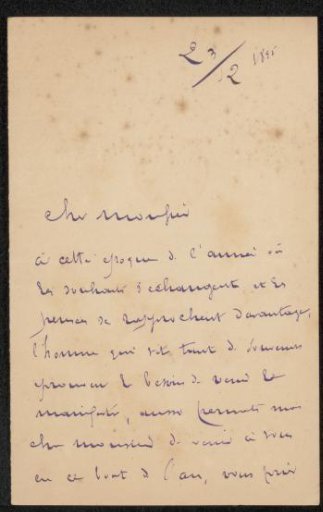 23/12 1895
cher monsieur
à cette époque de l'année où
les souhaits s'échangent et les
pensées se rapprochent davantage,
l'homme qui vit tant de souvenirs
éprouve le besoin de venir le
manifester, aussi permettez moi
cher monsieur de venir à vous
en ce bout de l'an, vous prier